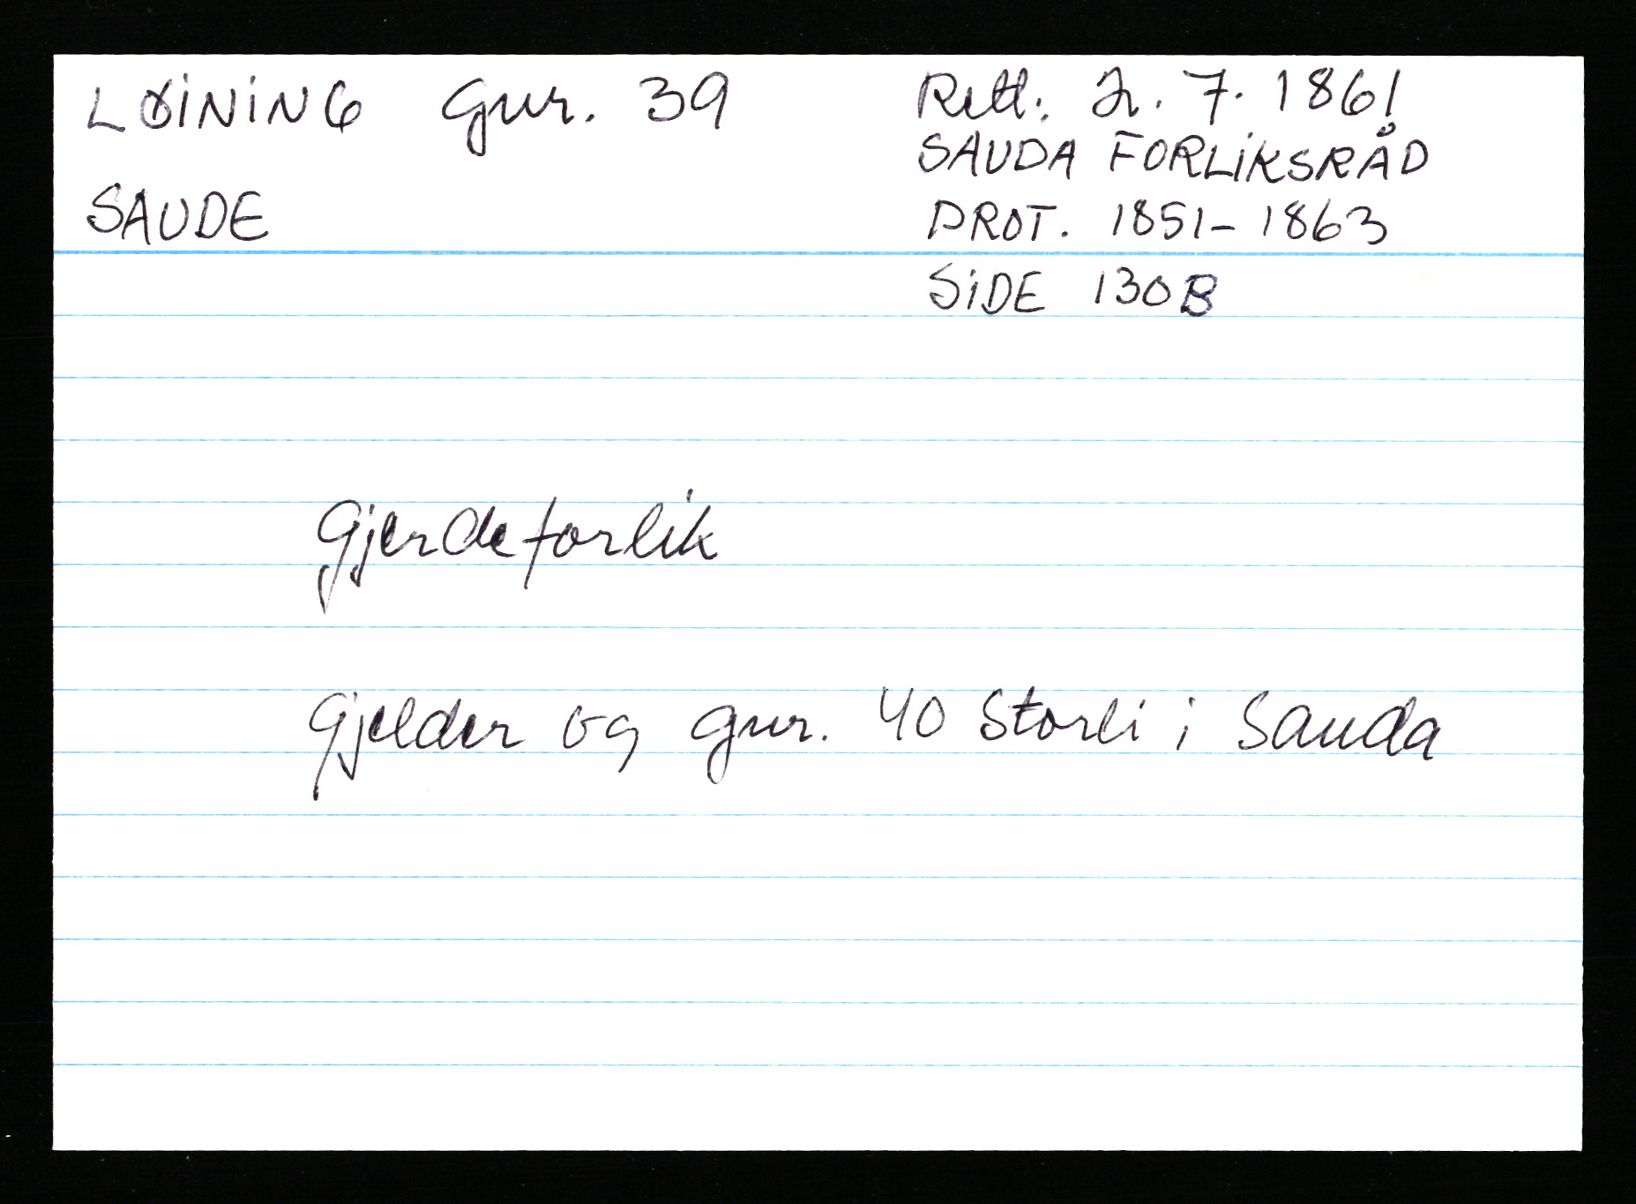 LØINING gnr. 39
SAUDE
Rett: 2. 7. 1861
SAUDA FORLIKSRÅD
PROT. 1851-1863
SIDE 130B
Gjerdeforlik
Gjelder og gnr. 40 Storli i Sauda